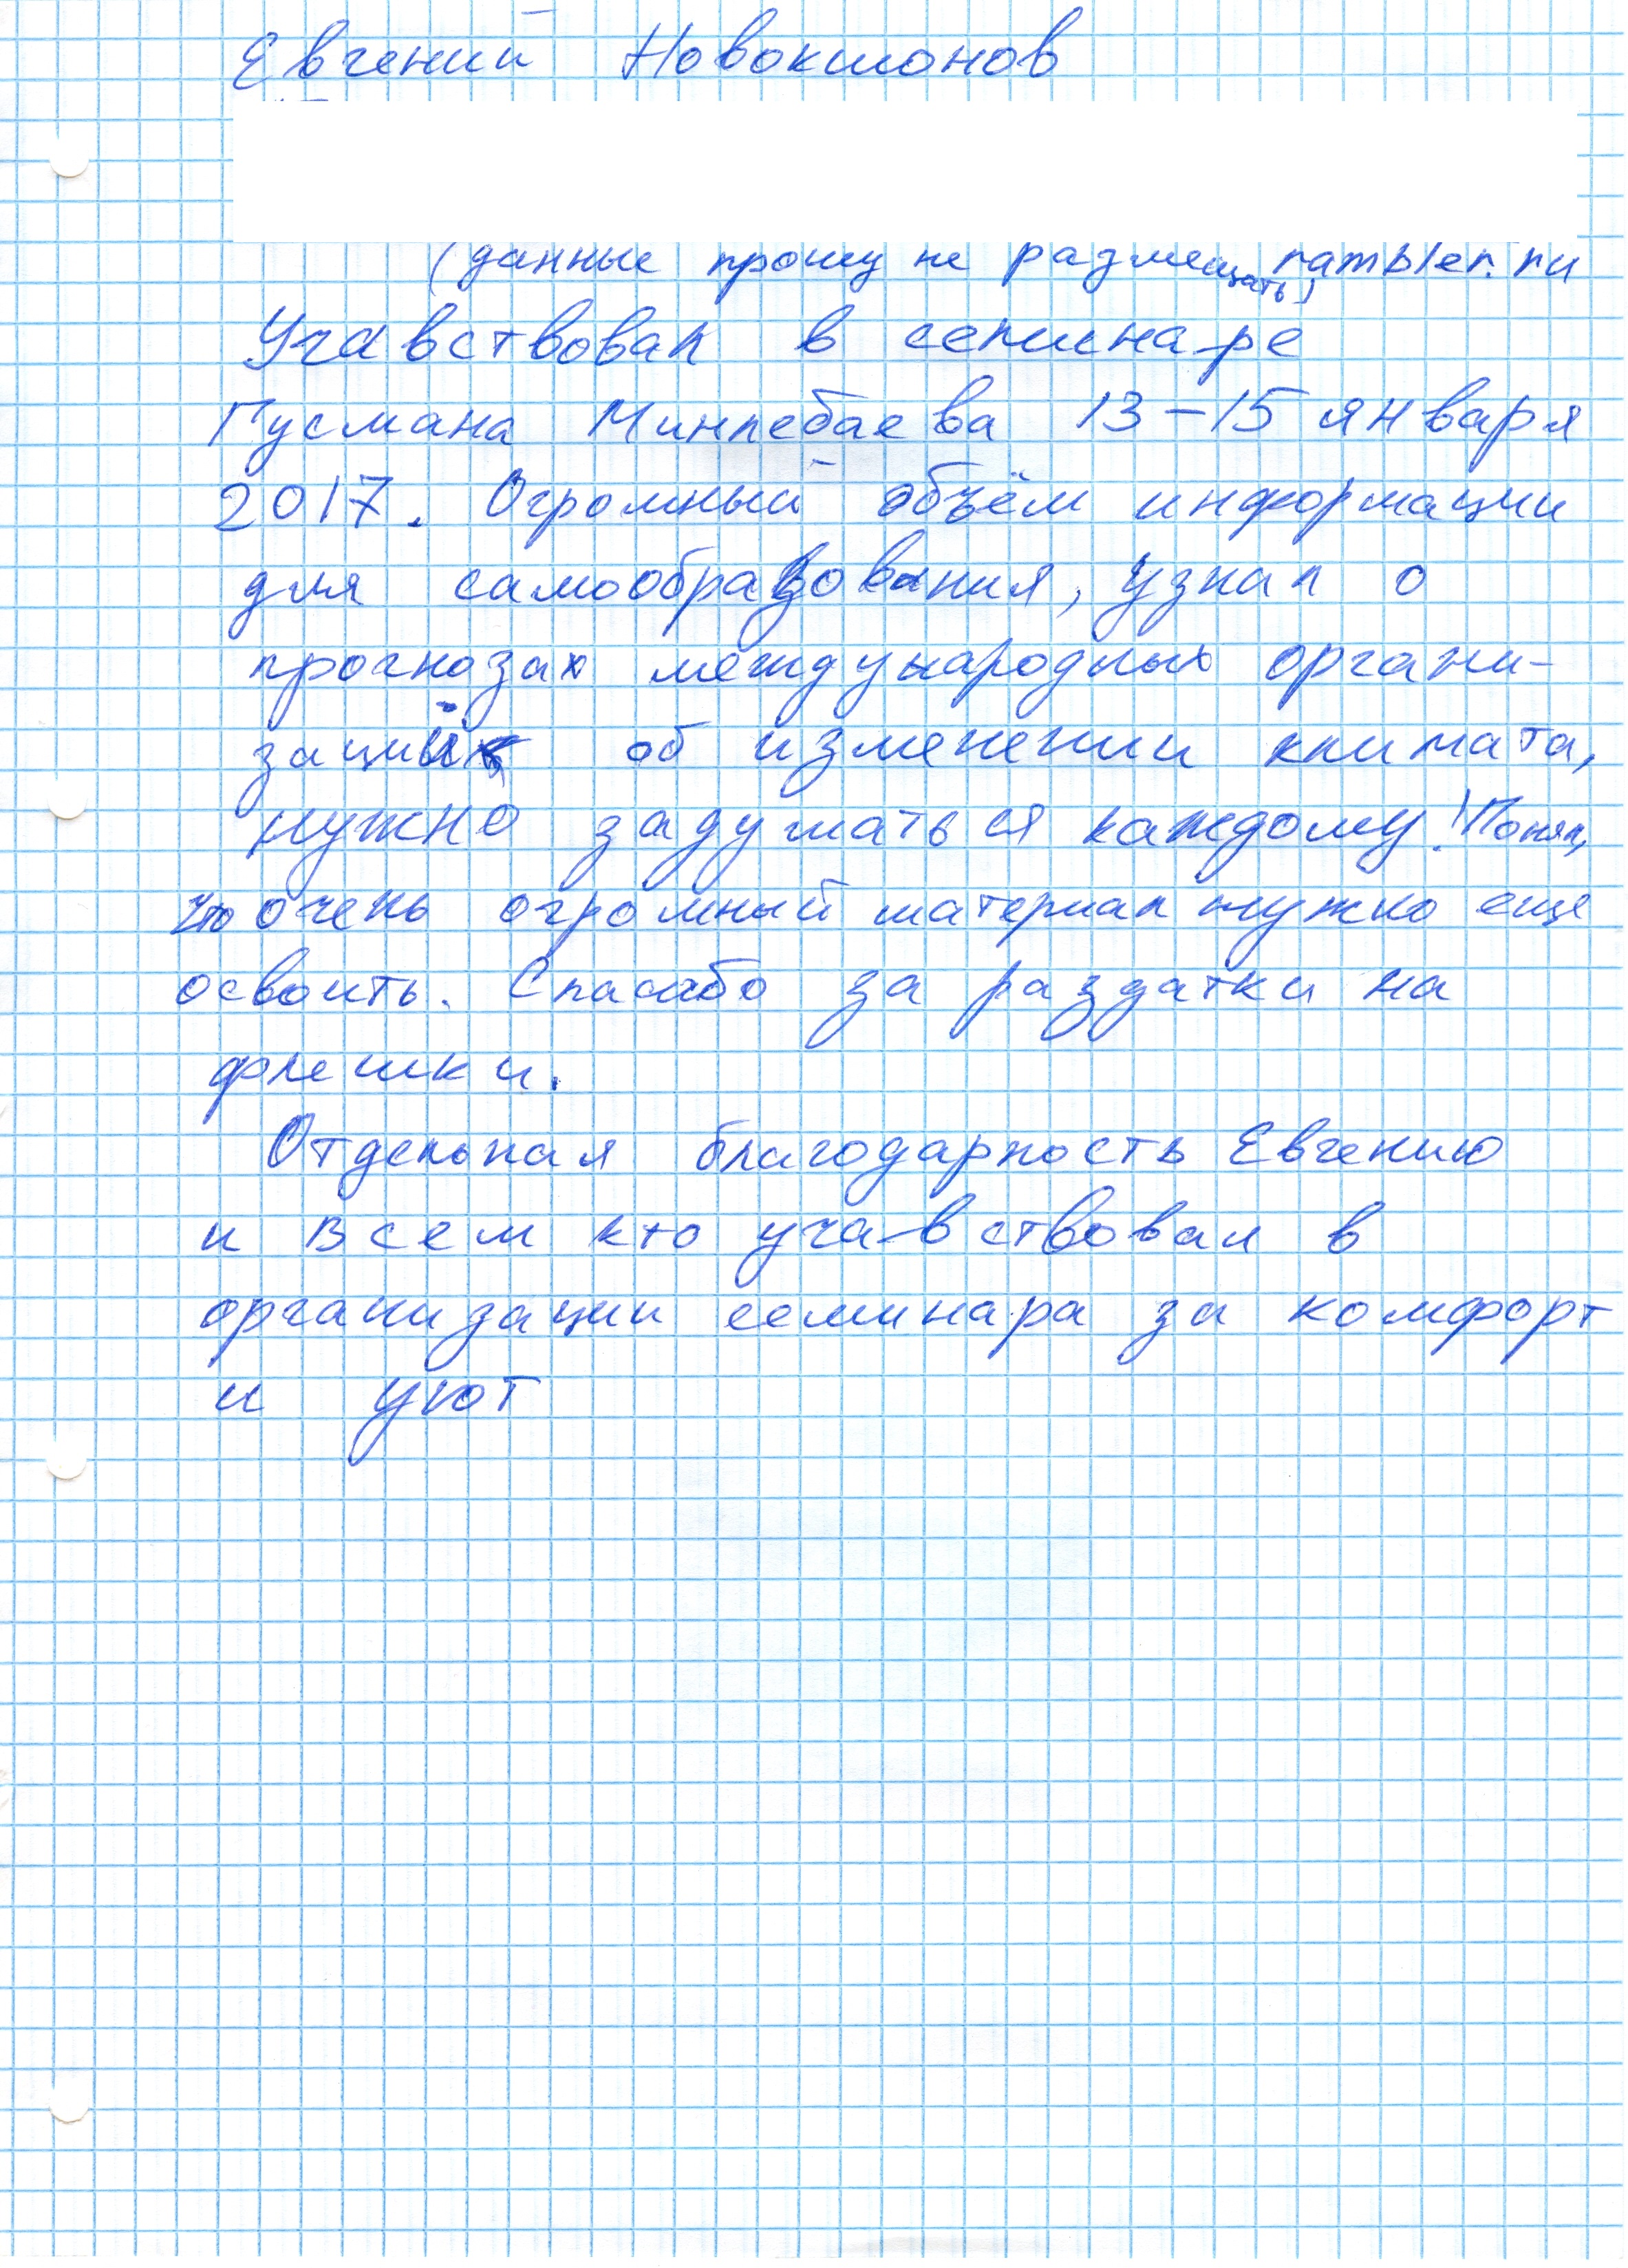 Евгений Новокшонов
(данные прошу не размещать) rambler.ru
Учавствовал в семинаре
Гусмана Минлебаева 13-15 января
2017. Огромный объём информации
для самообразования, узнал о
прогнозах международных органи-
заций об изменении климата,
нужно задуматься каждому! Понял,
что очень огромный материал нужно еще
освоить. Спасибо за раздатки на
флешки.
Отдельная благодарность Евгению
и всем кто учавствовал в
организации семинара за комфорт
и уют